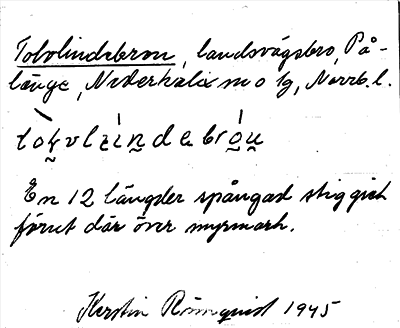 Tolvlindebron, landsvägsbro, På-
länge, Nederkalix sn o tg, Norrb. l.
En 12 längder spångad stig gick
förut där över myrmark.
Kerstin Rönnquist 1945